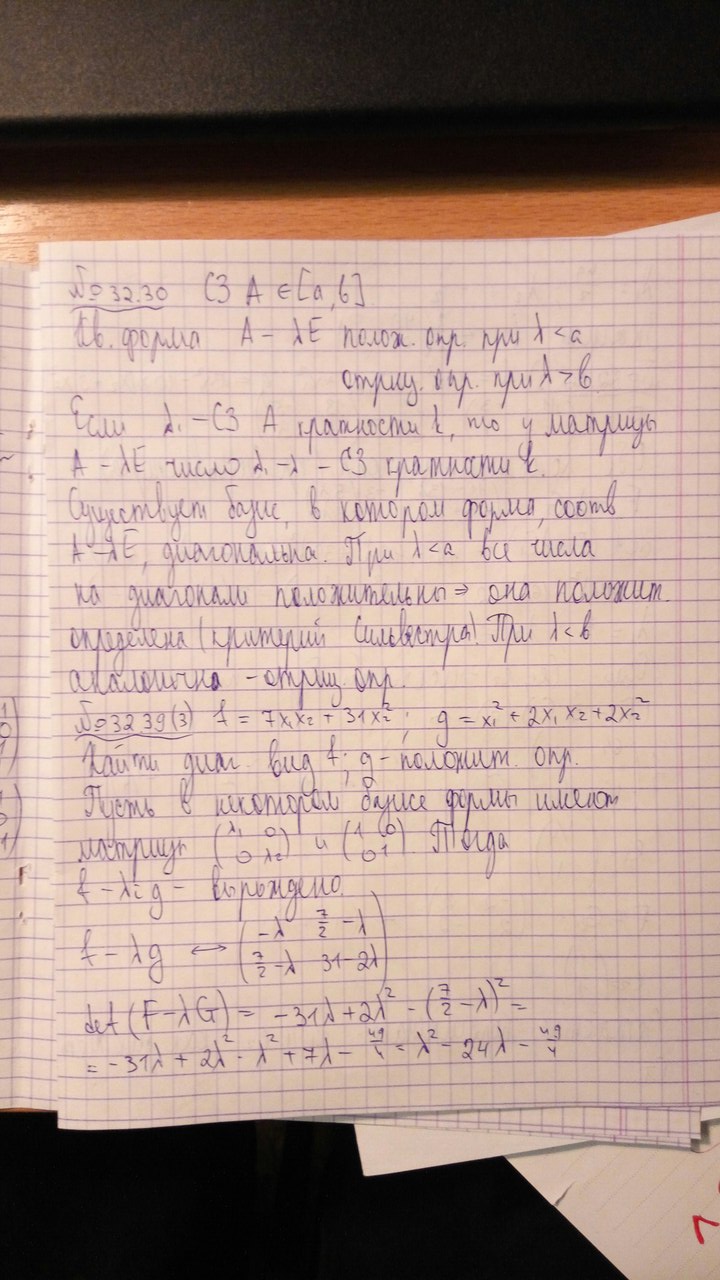 №32.30 СЗ A ∈ [a, b]
Кв. форма A - λE полож. опр. при λ < a
отриц. опр. при λ > b
Если λᵢ - СЗ A кратности k, то у матрицы
A - λE число λᵢ - λ - СЗ кратности k.
Существует базис, в котором форма, соотв
A - λE, диагональна. При λ < a все числа
на диагонали положительны ⇒ она положит.
определена (критерий Сильвестра). При λ < b
аналогично - отриц. опр.
№32 39(3) f = 7x₁x₂ + 31x₂² ; g = x₁² + 2x₁x₂ + 2x₂²
Найти диаг. вид f; g - положит. опр.
Пусть в некотором базисе формы имеют
матрицы (λ₁ 0
0 λ₂) и (1 0
0 1). Тогда
f - λᵢg - вырождено.
f - λg ↔ (-λ 7/2 - λ
7/2 - λ 31 - 2λ)
det(F - λG) = -31λ + 2λ² - (7/2 - λ)² =
= -31λ + 2λ² - λ² + 7λ - 49/4 = λ² - 24λ - 49/4